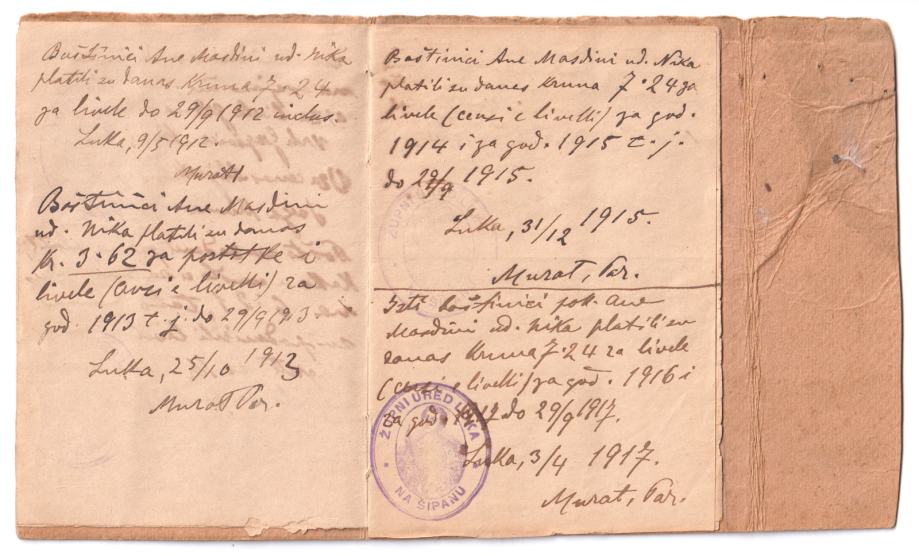 Baštinici Ane Masdini ud. Nika
platili su danas Kruna 7·24
za livele do 29/9 1912 inclus.
Luka, 9/5 1912.
Murat
Baštinici Ane Masdini
ud. Nika platili su danas
Kr. 3·62 za i
livele (censi e livelli) za
god. 1913 t. j. do 29/9 1913
Luka, 25/10 1913
Murat Par.
Baštinici Ane Masdini ud. Nika
platili su danas Kruna 7·24 za
livele (censi e livelli) za god.
1914 i za god. 1915 t. j.
do 29/9 1915.
Luka, 31/12 1915.
Murat, Par.
Isti baštinici pok. Ane
Masdini ud. Nika platili su
danas Kruna 7·24 za livele
(censi e livelli) za god. 1916 i
za god. do 29/9 1917.
Luka, 3/4 1917.
Murat, Par.
ŽUPNI URED LUKA
NA ŠIPANU